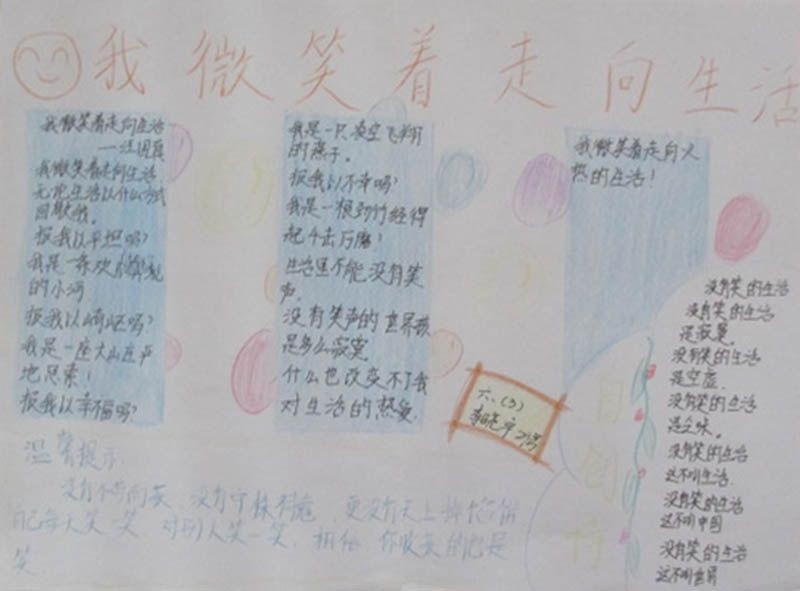 我微笑着走向生活
我微笑着走向生活
——汪国真
我微笑着走向生活
无论生活以什么方式
回敬我。
报我以平坦吗?
我是一条欢乐奔流
的小河
报我以崎岖吗?
我是一座大山庄严
地思索!
报我以幸福吗?
我是一只凌空飞翔
的燕子。
报我以不幸吗?
我是一根劲竹经得
起千击万磨!
生活里不能没有笑
声,
没有笑声的世界该
是多么寂寞
什么也改变不了我
对生活的热爱
我微笑着走向火
热的生活!
六.(3)
21号
没有笑的生活
没有笑的生活
是寂寞
没有笑的生活
是空虚
没有笑的生活
是乏味。
没有笑的生活
这不叫生活
没有笑的生活
这不叫中国
没有笑的生活
这不叫世界
自创诗
温馨提示
没有不劳而获、没有守株待兔,更没有天上掉馅饼
每天笑一笑,对别人笑一笑,相信,你收获的也是
笑